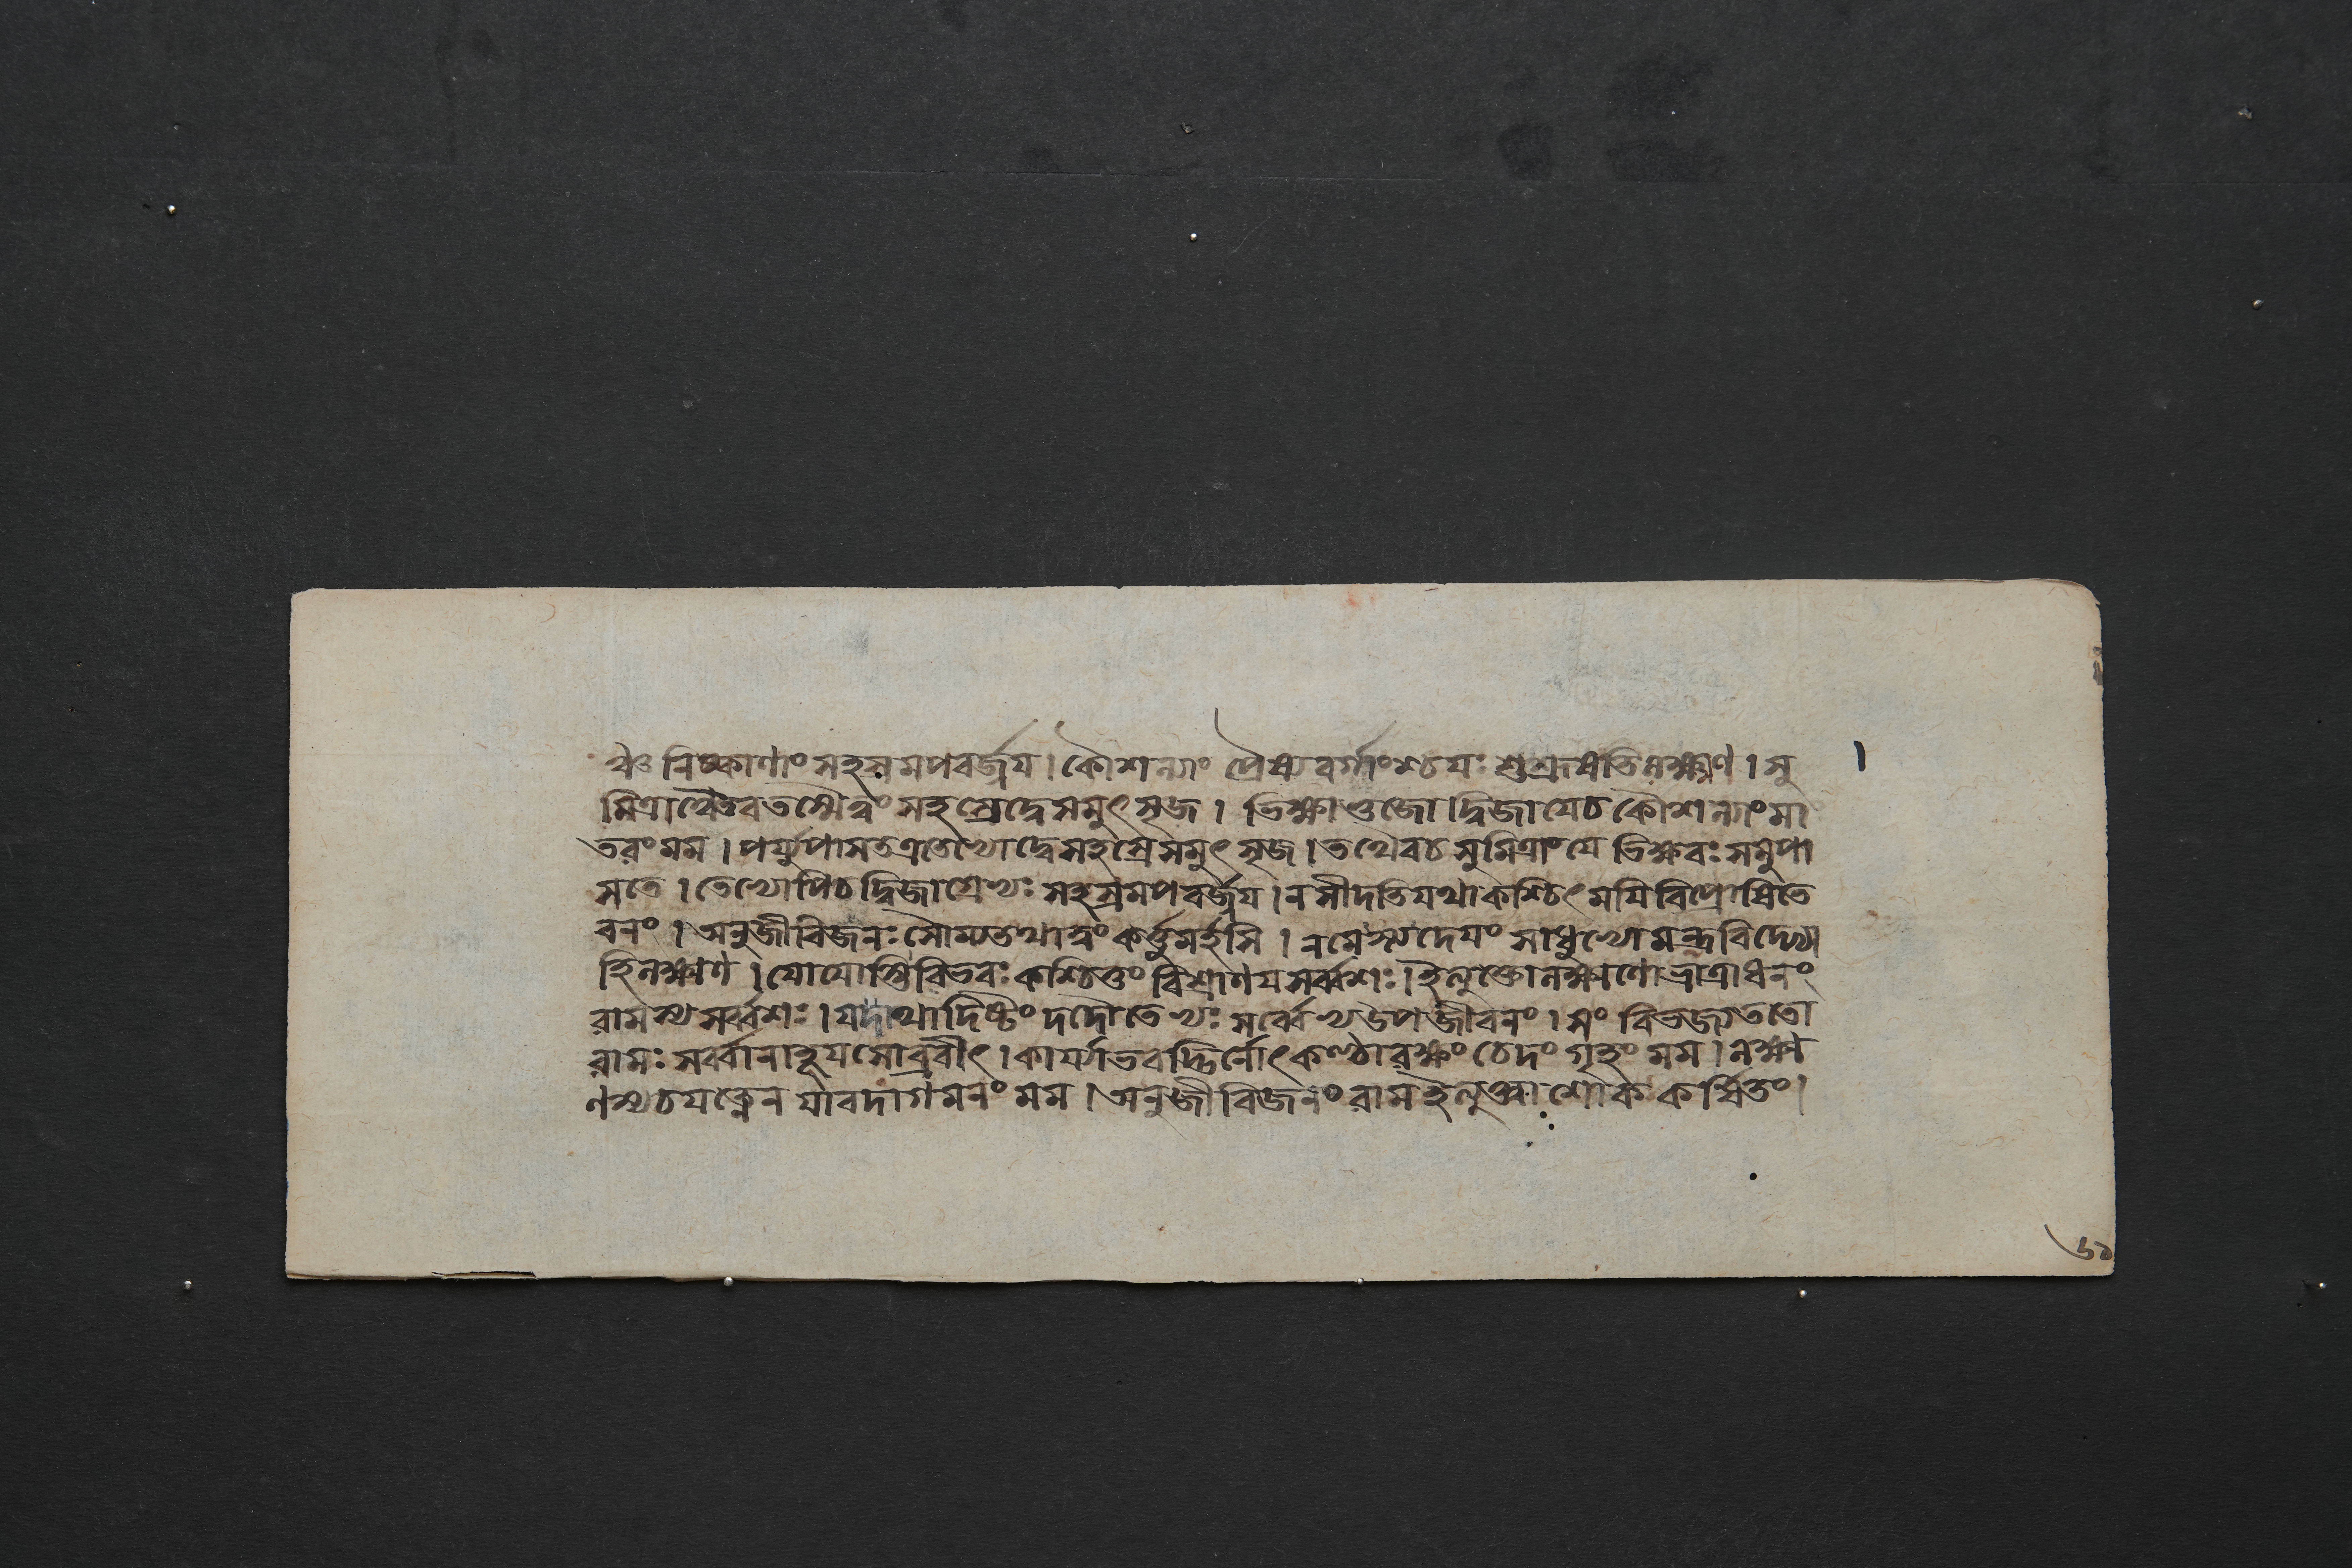 ঞ্চ নিষ্কাণাং সহস্রমপবর্জ্জয। কৌশল্যাং প্রৈষ্যবর্গাংশ্চযঃ শুশ্রূষতিলক্ষ্মণ। সু
মিত্রাঞ্চৈবতস্মৈত্বং সহস্রেদ্বেসমুৎসৃজ। ভিক্ষাভুজো দ্বিজাযেচকৌশল্যাংমা
তরংমম। পর্য্যুপাসতএতেভ্যোদ্বেসহস্রেসমুৎসৃজ। তথৈবচসুমিত্রাংযে ভিক্ষবঃসমুপা
সতে। তেভ্যোপিচদ্বিজাগ্রেভ্যঃ সহস্রমপবর্জ্জয। নসীদতিযথাকশ্চিৎমযিবিপ্রোষিতে
বনং। অনুজীবিজনঃসৌম্যতথাত্বংকর্ত্তুমর্হসি। নমেস্ত্যদেযং সাধুভ্যোমন্ত্রবিদ্ভ্যো
হিলক্ষ্মণ। যোযোস্তিবিভবঃকশ্চিত্তং বিশ্রাণযসর্ব্বশঃ। ইত্যুক্তোলক্ষ্মণোভ্রাত্রাধনং
রামস্যসর্ব্বশঃ। যদাথাদিষ্টং দদৌতেভ্যঃ সর্ব্বেভ্যউপজীবনং। সং বিভজ্যততো
রামঃসর্ব্বানাহূযসোব্রবীৎ। কার্য্যাভবদ্ভির্নোৎকণ্ঠারক্ষ্যং চেদং গৃহং মম। লক্ষ্ম
ণস্যচযত্নেন যাবদাগমনং মম। অনুজীবিজনংরামইত্যুক্ত্বাশোককর্ষিতং।
৬১